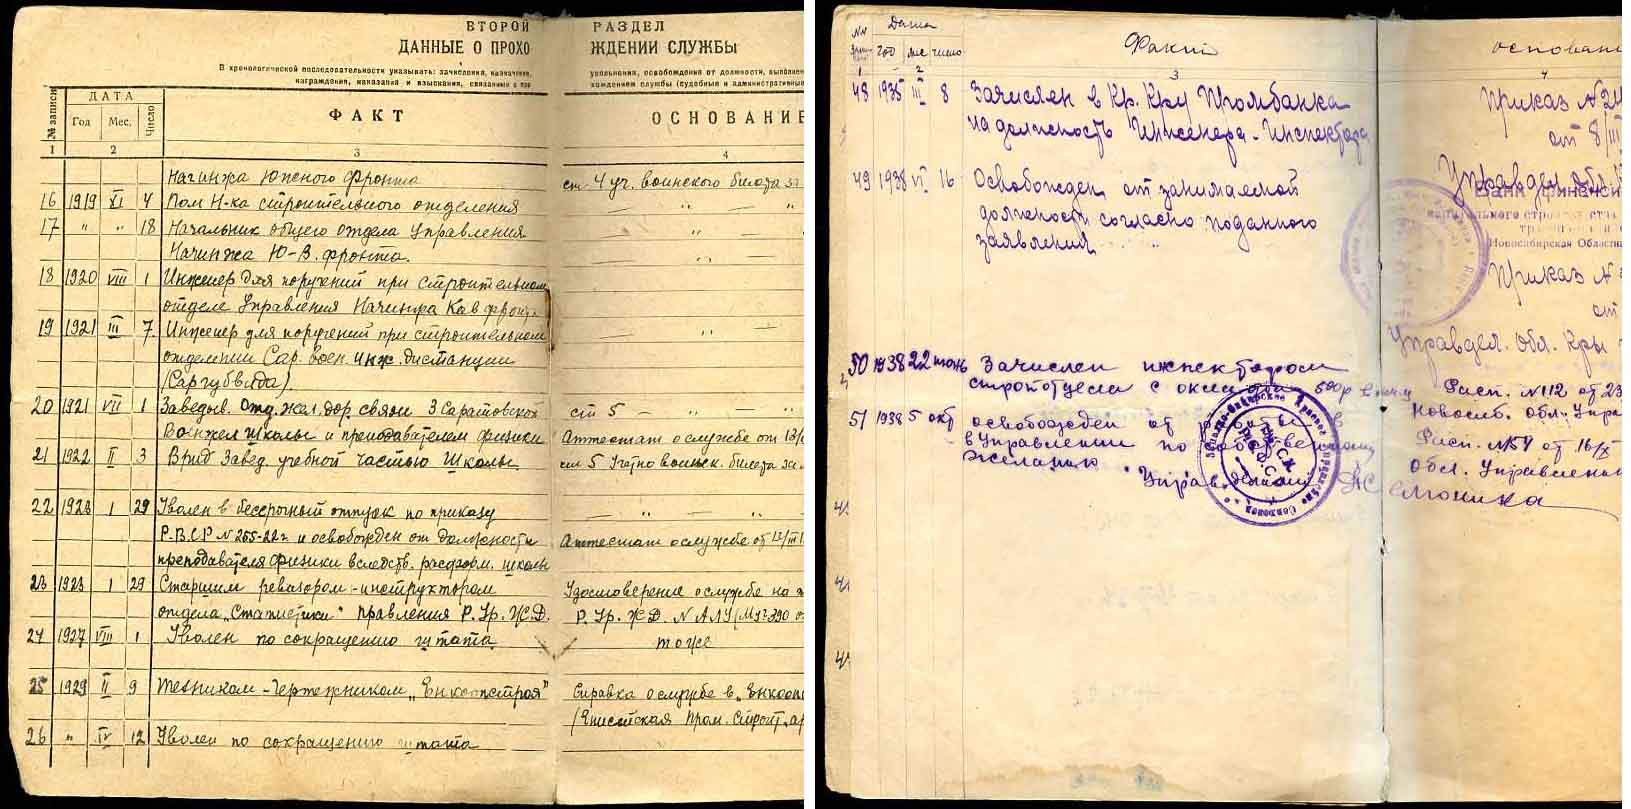 ВТОРОЙ РАЗДЕЛ
ДАННЫЕ О ПРОХОЖДЕНИИ СЛУЖБЫ
В хронологической последовательности указывать: зачисления, назначения, увольнения, освобождения от должности, выполнен
награждения, наказания и взыскания, связанные с прохождением службы (судебные и административные
№ записи ДАТА ФАКТ ОСНОВАНИЕ
Год Мес. Число
1 2 3 4
Начинжа Южного Фронта ст 4 уч. воинского билета за
16 1919 XI 4 Пом Н-ка строительного отделения — " —
17 " " 18 Начальник общего отдела Управления — " —
Начинжа Ю-В. фронта. — " —
18 1920 VIII 1 Инженер для поручений при строительном
отделе Управления Начинжа Кав фронта
19 1921 III 7 Инженер для поручений при строительном — " —
отделении Сар. воен. инж. дистанции
(Саргубвода).
20 1921 VII 1 Заведыв. Отд. жел. дор. связи 3 Саратовской ст 5 — " —
Военжел школы и преподавателем физики Аттестат о службе от 13/
21 1922 II 3 Врид Завед. учебной частью Школы ст 5 Учетно воинск. билета за
22 1923 1 29 Уволен в бессрочный отпуск по приказу — " —
Р.В.С.Р N 255-22г и освобожден от должности Аттестат о службе от 12/III
преподавателя Физики вследств. расформ. школы
23 1923 1 29 Старшим ревизором-инструктором Удостоверение о службе на
отдела „Статистики" Правления Р. Ур. Ж.Д. Р. Ур. Ж.Д. N
24 1927 VIII 1 Уволен по сокращению штата то же
25 1929 II 9 Техником-чертежником „Енкоопстроя" Справка о службе в „Енкооп
(Енисейская Пром. Строит.
26 " IV 12 Уволен по сокращению штата
NN Дата Факт основан
год мес число
1 2 3 4
48 1935 III 8 Зачислен в Кр. Кру Промбанка Приказ N 24
на должность Инженера-Инспектора от 8/III
Управдел.
49 1938 VI 16 Освобожден от занимаемой
должности согласно поданного
заявления
Новосибирская Област
Приказ N
от
Управдел. Обл.
50 1938 22 июнь Зачислен инспектором
стройотдела с окладом 500 р в м-ц Расп. N 112 от 23
Новосиб. Обл. Упра
51 1938 5 окт освобожден от работы в Расп. N 54 от 16/X
в Управлении по собственному Обл. Управления
желанию
Управделами